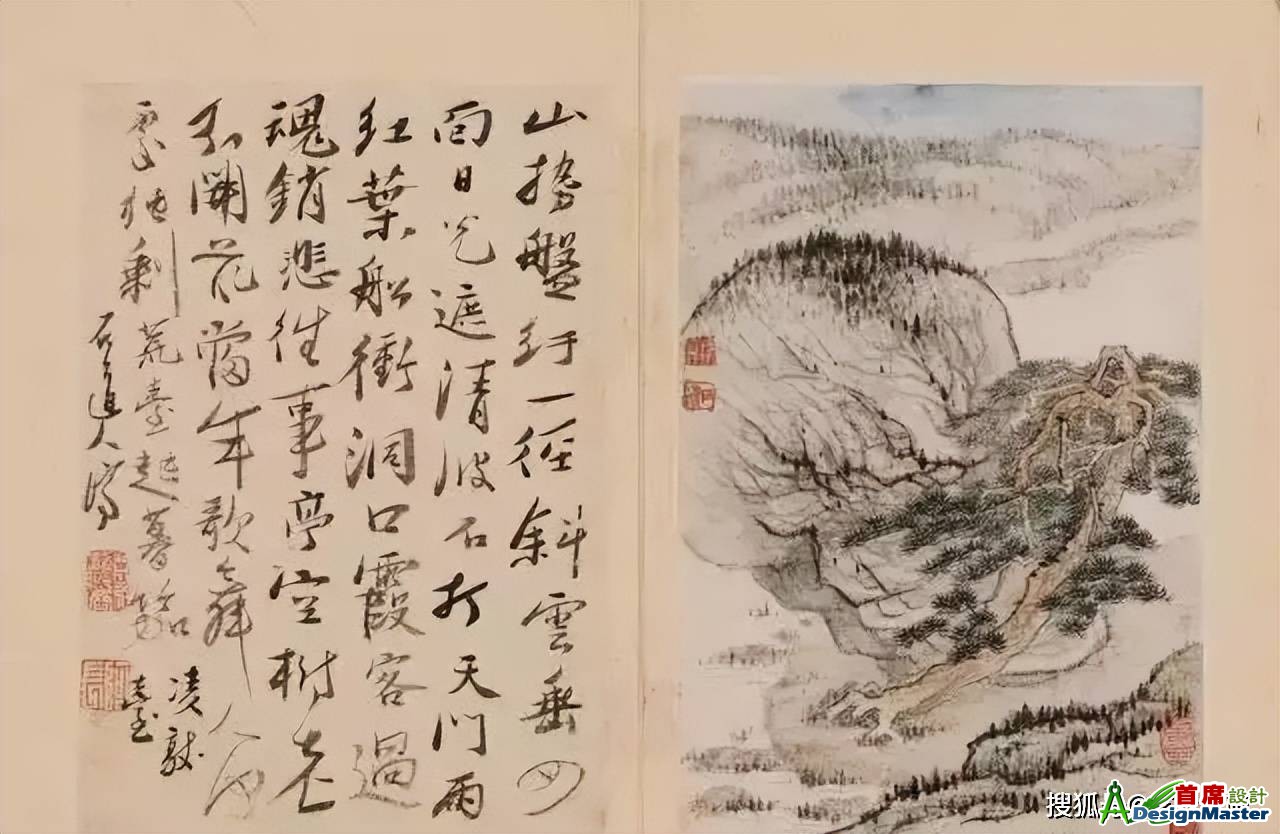 山勢盤紆一徑斜雲垂四
面日光遮清波石打天門雨
紅葉船衝洞口霞客過
魂銷悲往事亭空樹老
不開花當年歌舞人何
處獨剩荒臺起暮鴉
凌歊
臺
石道人濟
搜狐
首席設計
DesignMaster